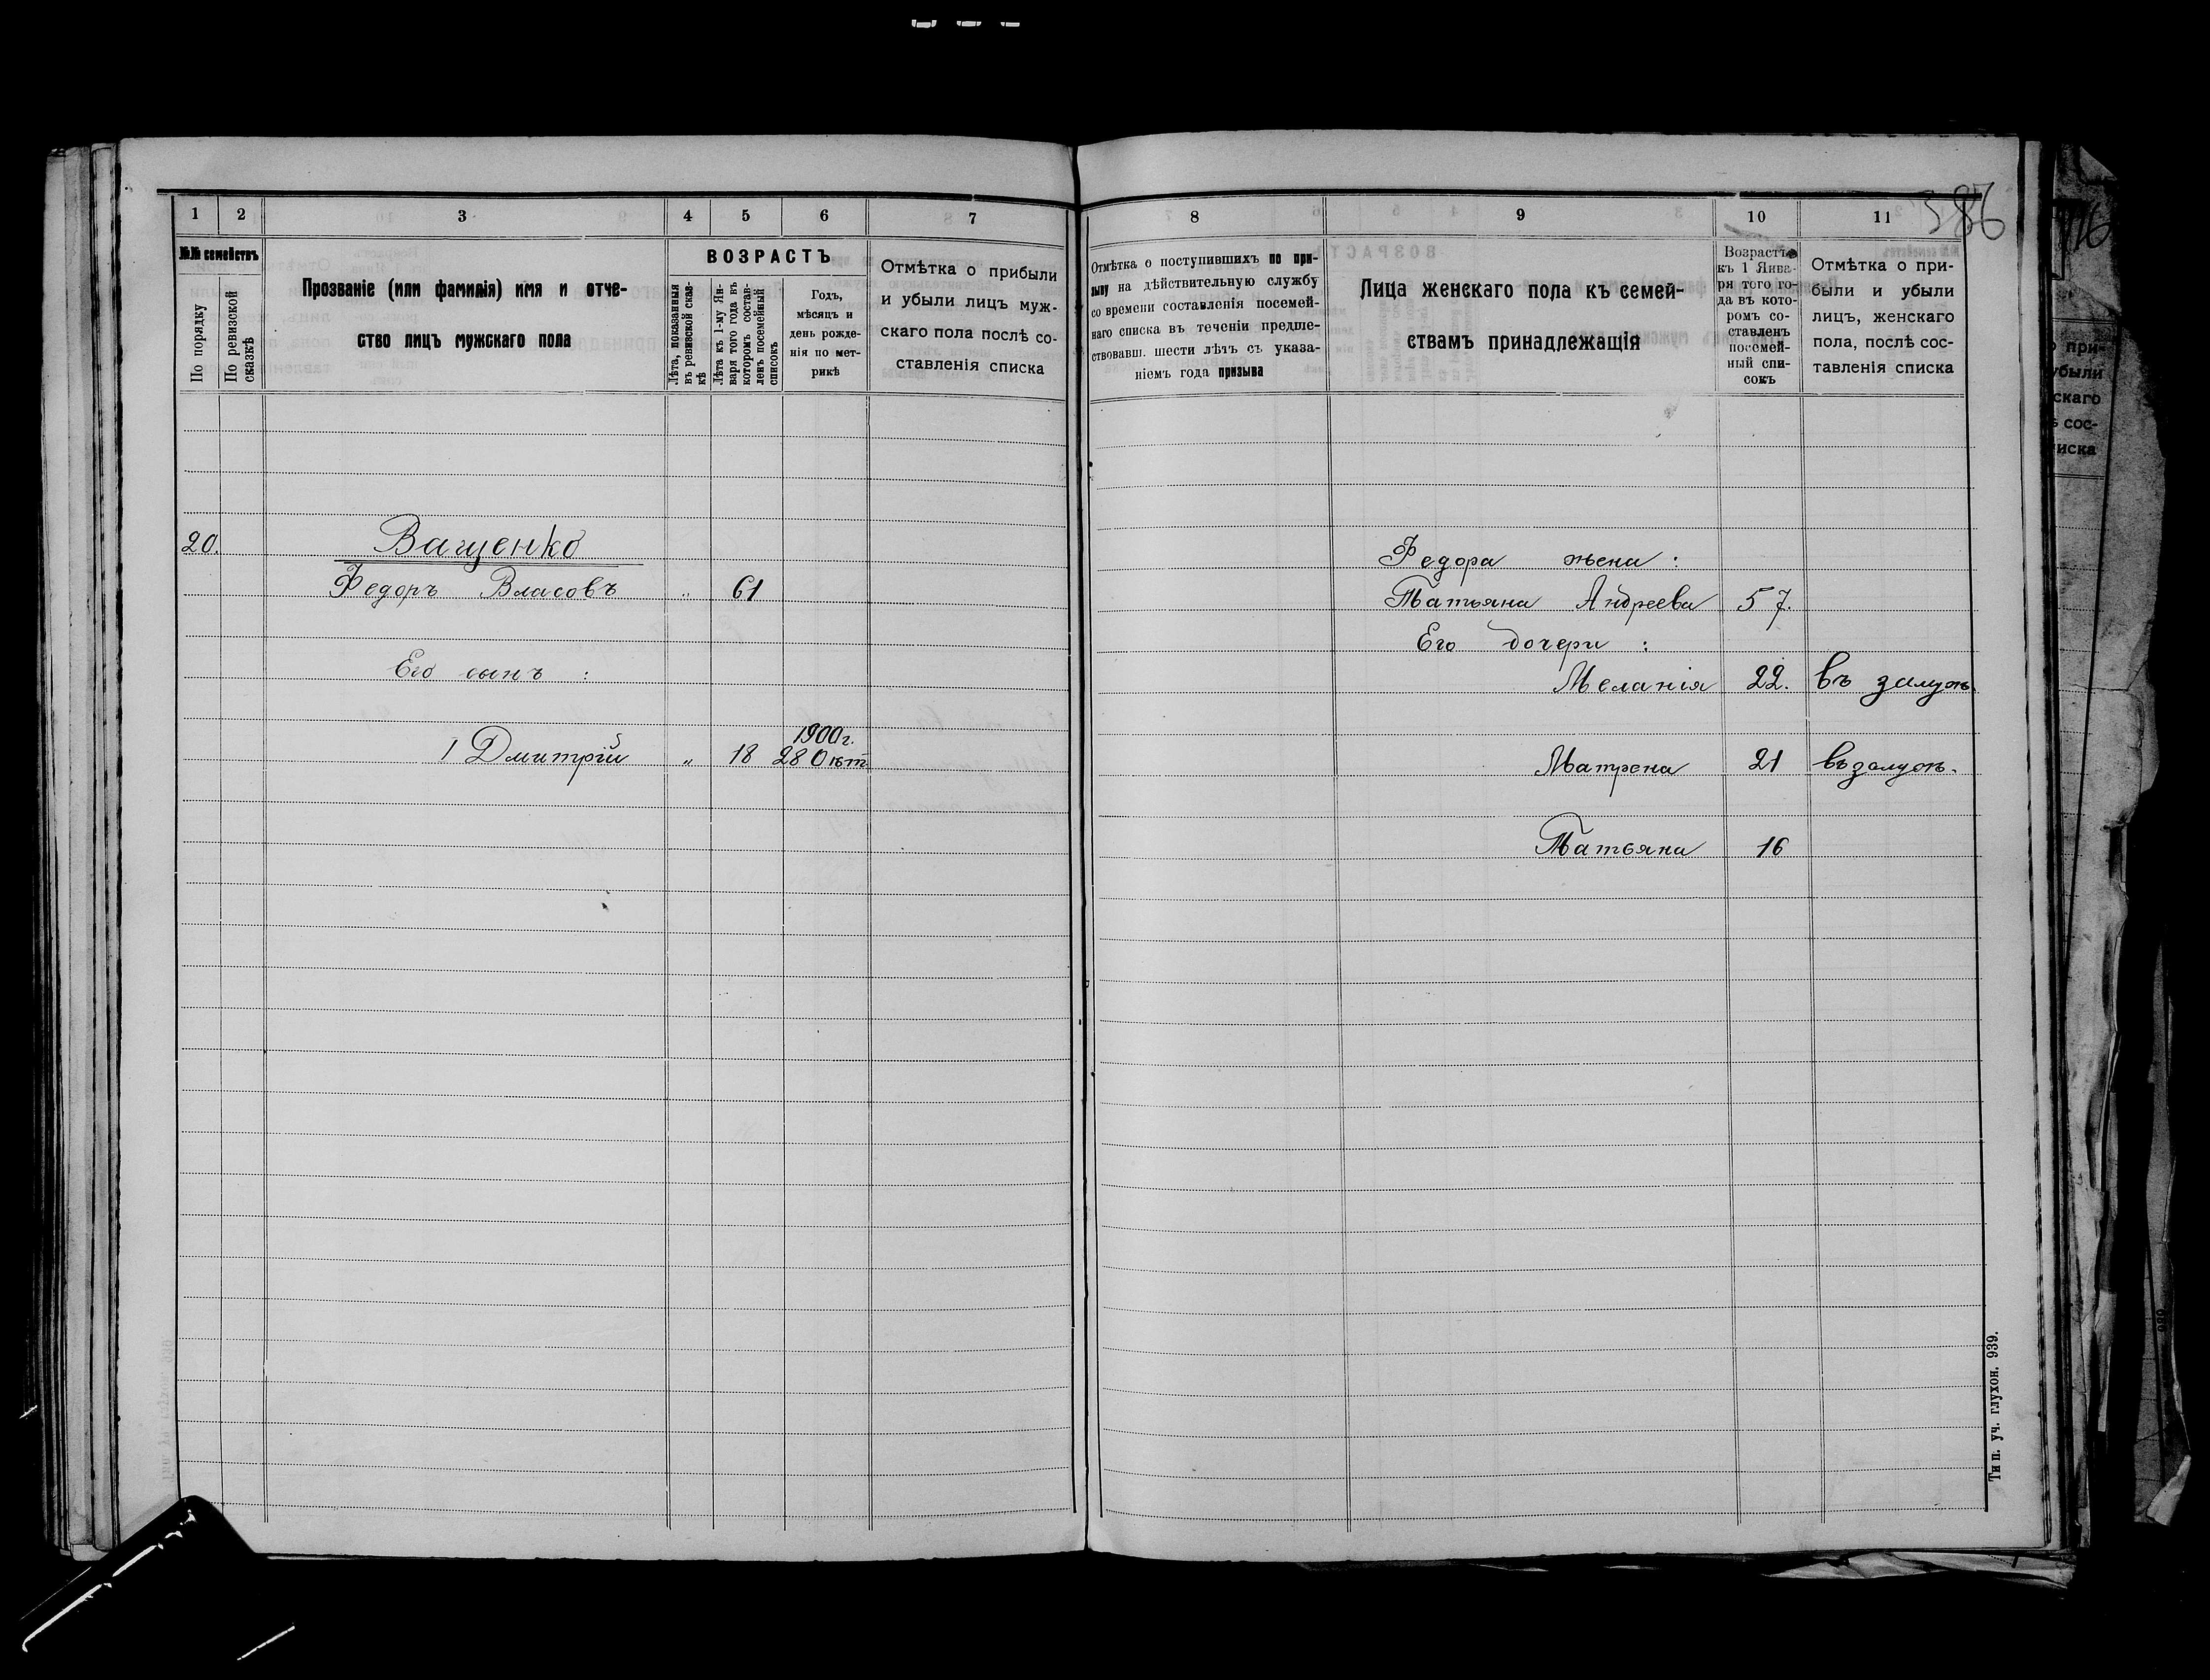 386
1 2 3 4 5 6 7
№№ семействъ
По порядку
По ревизской сказкѣ
Прозваніе (или фамилія) имя и отче-
ство лицъ мужскаго пола
ВОЗРАСТЪ
Лѣта, показанныя
въ ревизской сказ-
кѣ
Лѣта къ 1-му Ян-
варя того года въ
которомъ состав-
ленъ посемейный
списокъ
Годъ,
мѣсяцъ и
день рожде-
нія по мет-
рикѣ
Отмѣтка о прибыли
и убыли лицъ муж-
скаго пола послѣ со-
ставленія списка
20. Ващенко
Федоръ Власовъ „ 61
Его сынъ :
1900 г.
1 Дмитрій „ 18 28 Окт
8 9 10 11
Отмѣтка о поступившихъ по при-
зыву на дѣйствительную службу
со времени составленія посемей-
наго списка въ теченіи предше-
ствовавш. шести лѣтъ съ указа-
ніемъ года призыва
Лица женскаго пола къ семей-
ствамъ принадлежащія
Возрастъ
къ 1 Янва-
ря того го-
да въ кото-
ромъ со-
ставленъ
посемей-
ный спи-
сокъ
Отмѣтка о при-
были и убыли
лицъ, женскаго
пола, послѣ сос-
тавленія списка
Федора жена :
Татьяна Андреева 57.
Его дочери :
Меланія 22. въ замуж.
Матрена 21 въ замуж.
Татьяна 16
Тип. уч. глухон. 939.
при-
убыли
скаго
сос-
иска